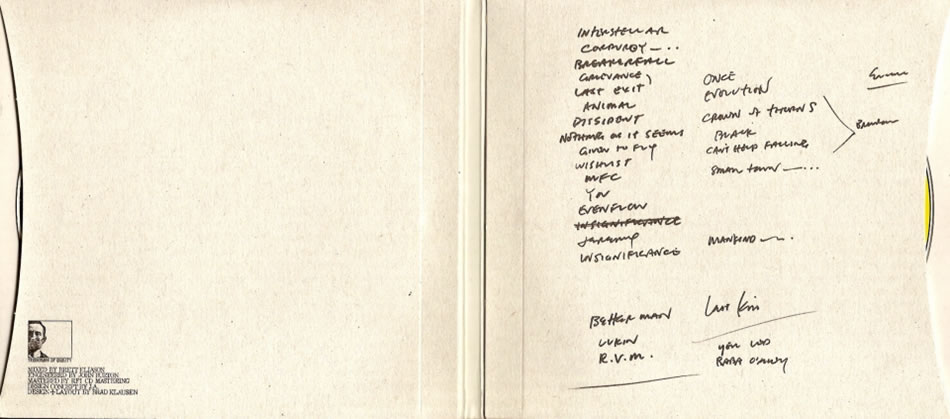 INTERSTELLAR
CORDUROY —..
BREAKERFALL
GRIEVANCE
LAST EXIT
ANIMAL
DISSIDENT
NOTHING AS IT SEEMS
GIVEN TO FLY
WISHLIST
MFC
YOU
EVENFLOW
INSIGNIFICANCE
Jeremy
INSIGNIFICANCE
BETTER MAN
LUKIN
R.V.M.
ONCE
EVOLUTION
CROWN OF THORNS
BLACK
CAN'T HELP FALLING
SMALL TOWN —...
MANKIND
Last Kiss
YELL LED
BABA O'RILEY
Brendan
MIXED BY BRETT ELIASON
ENGINEERED BY JOHN BURTON
MASTERED BY RFI CD MASTERING
DESIGN CONCEPT BY J.A.
DESIGN + LAYOUT BY BRAD KLAUSEN